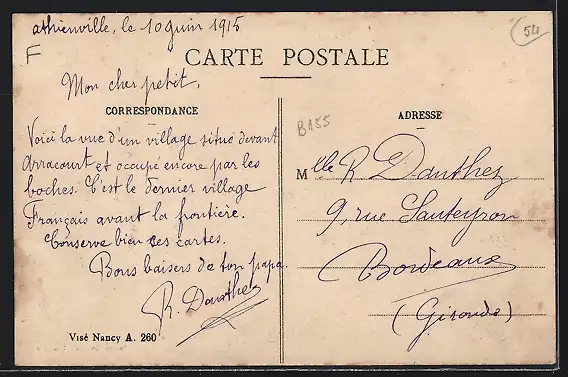 athienville, le 10 juin 1915
54
F
CARTE POSTALE
Mon cher petit,
CORRESPONDANCE
Voici la vue d'un village situé devant
Arracourt et occupé encore par les
boches. C'est le dernier village
Français avant la frontière.
Conserve bien ces cartes.
Bons baisers de ton papa.
R. Dauthez
Visé Nancy A. 260
BA55
ADRESSE
Mlle R Dauthez
9, rue Sauteyron
Bordeaux
(Gironde)